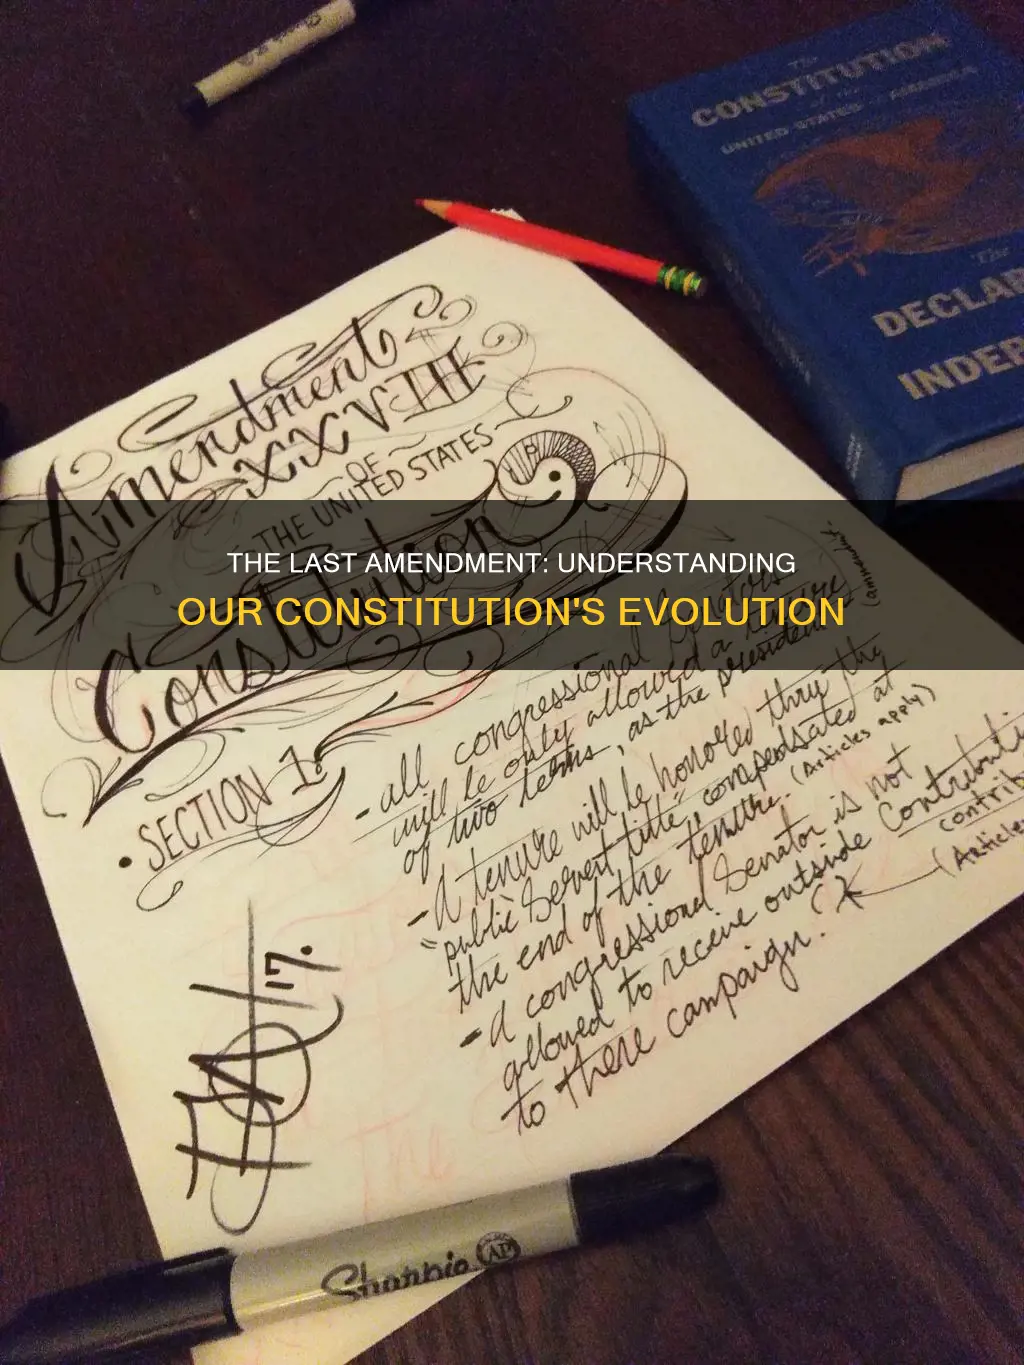 The
CONSTITUTION
of the
UNITED STATES of AMERICA
The
DECLAR
INDEP
Amendment
XXVIII
OF
THE UNITED STATES
Constitution
THE LAST AMENDMENT: UNDERSTANDING
OUR CONSTITUTION'S EVOLUTION
• SECTION 1.
- all congressional Senators
will be only allowed a tenure
of two terms, as the president
- A tenure will be honored thru the
"public Servent title," compedsated at
the end of the tenure. (Articles apply)
- A congressional Senator is not
allowed to receive outside Contributi
to there campaign.
contrib
(Article
17.
The
Sharpie
AP